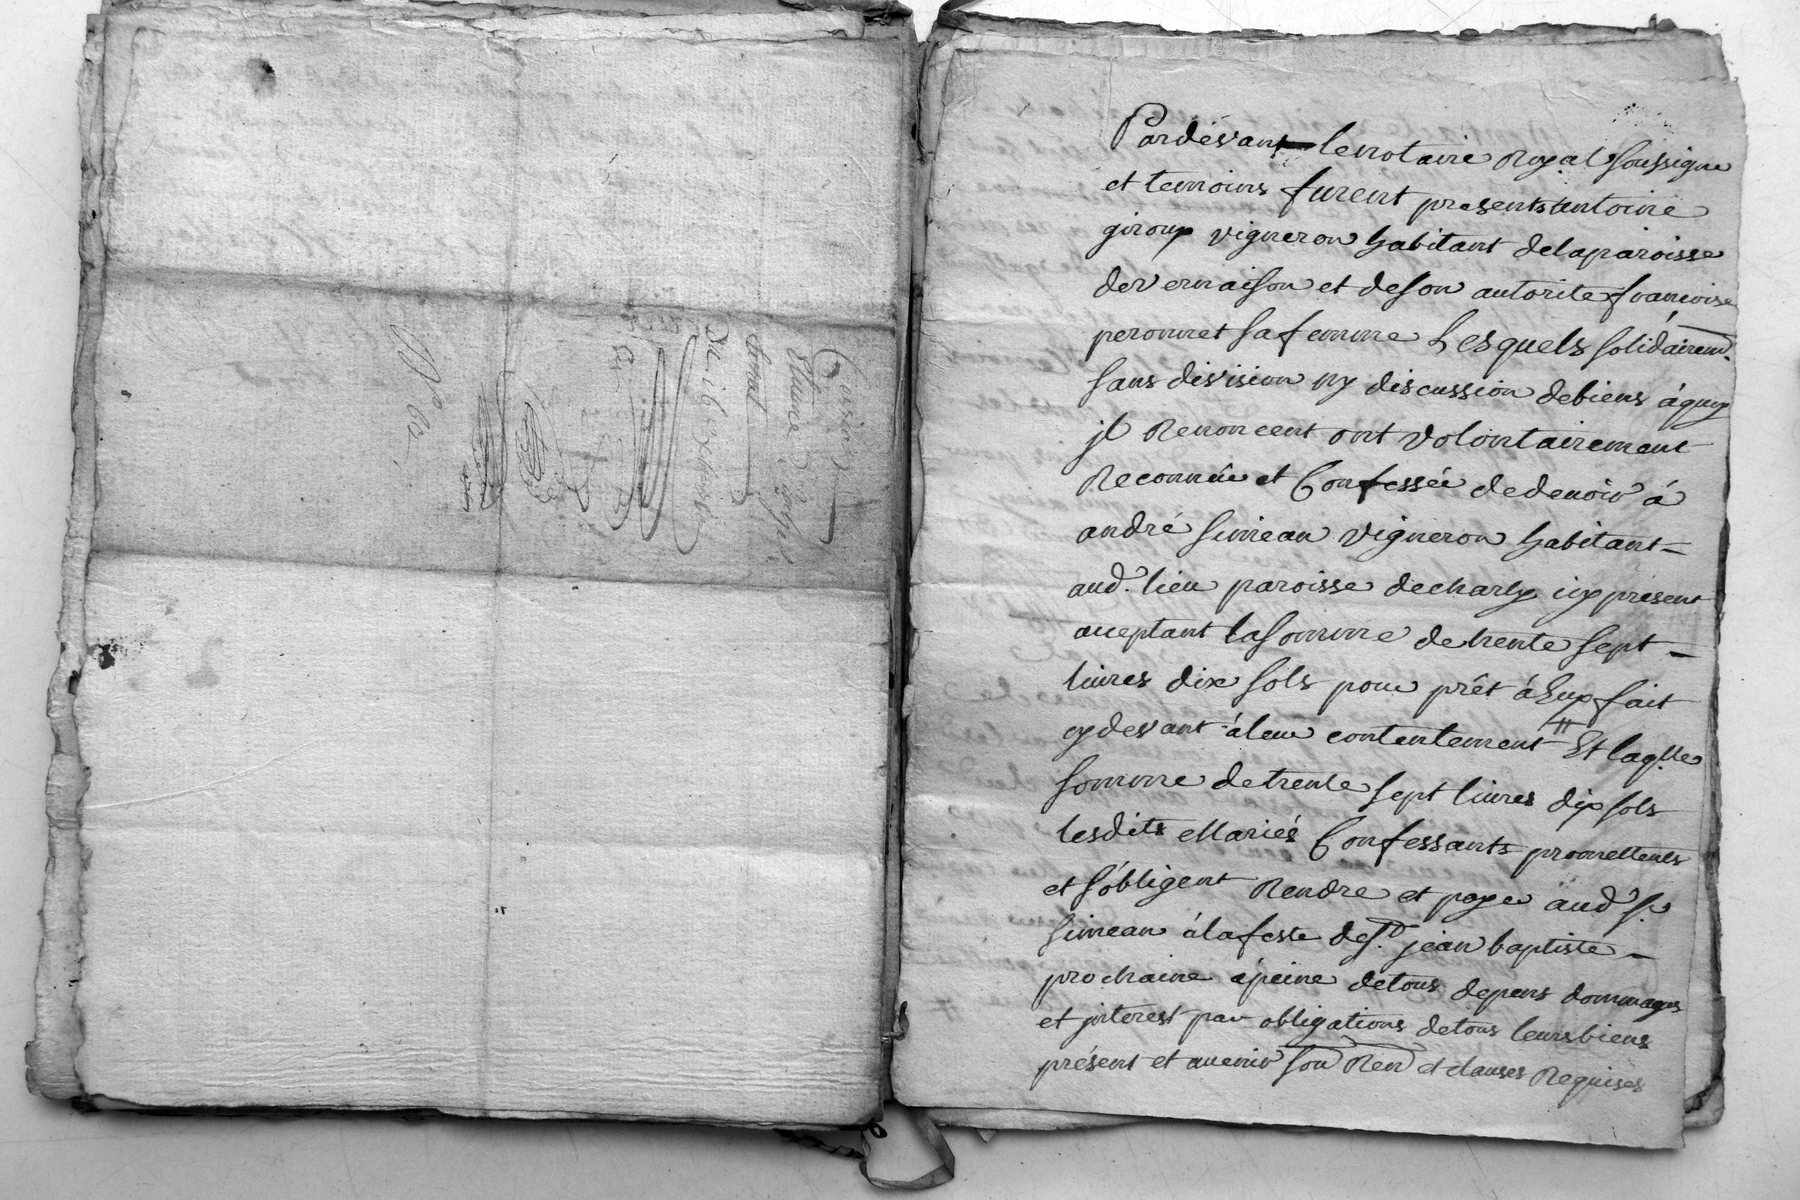 Pardevant le notaire Royal soussigne
et temoins furent presents antoine
giroux vigneron habitant de la paroisse
de vernaison et de son autorite francoise
peronnet sa femme Lesquels solidairemt.
sans division ny discussion de biens á quoy
jl Renoncent ont volontairement
Reconnüe et Confessée de devoir á
andré simean vigneron habitant
aud. lieu paroisse de charly icy présent
aceptant la somme de trente sept
livres dix sols pour prêt á Eux fait
cy devant á leur contentement Et laqlle
somme de trente sept livres dix sols
lesdits Mariés Confessants promettents
et s'obligent Rendre et payer aud Sr.
simean á la feste de St. jean baptiste
prochaine á peine de tous depens dommages
et jnterest par obligations de tous leurs biens
présent et avenir sou Ren et clauses Requises
Du 16
No 62